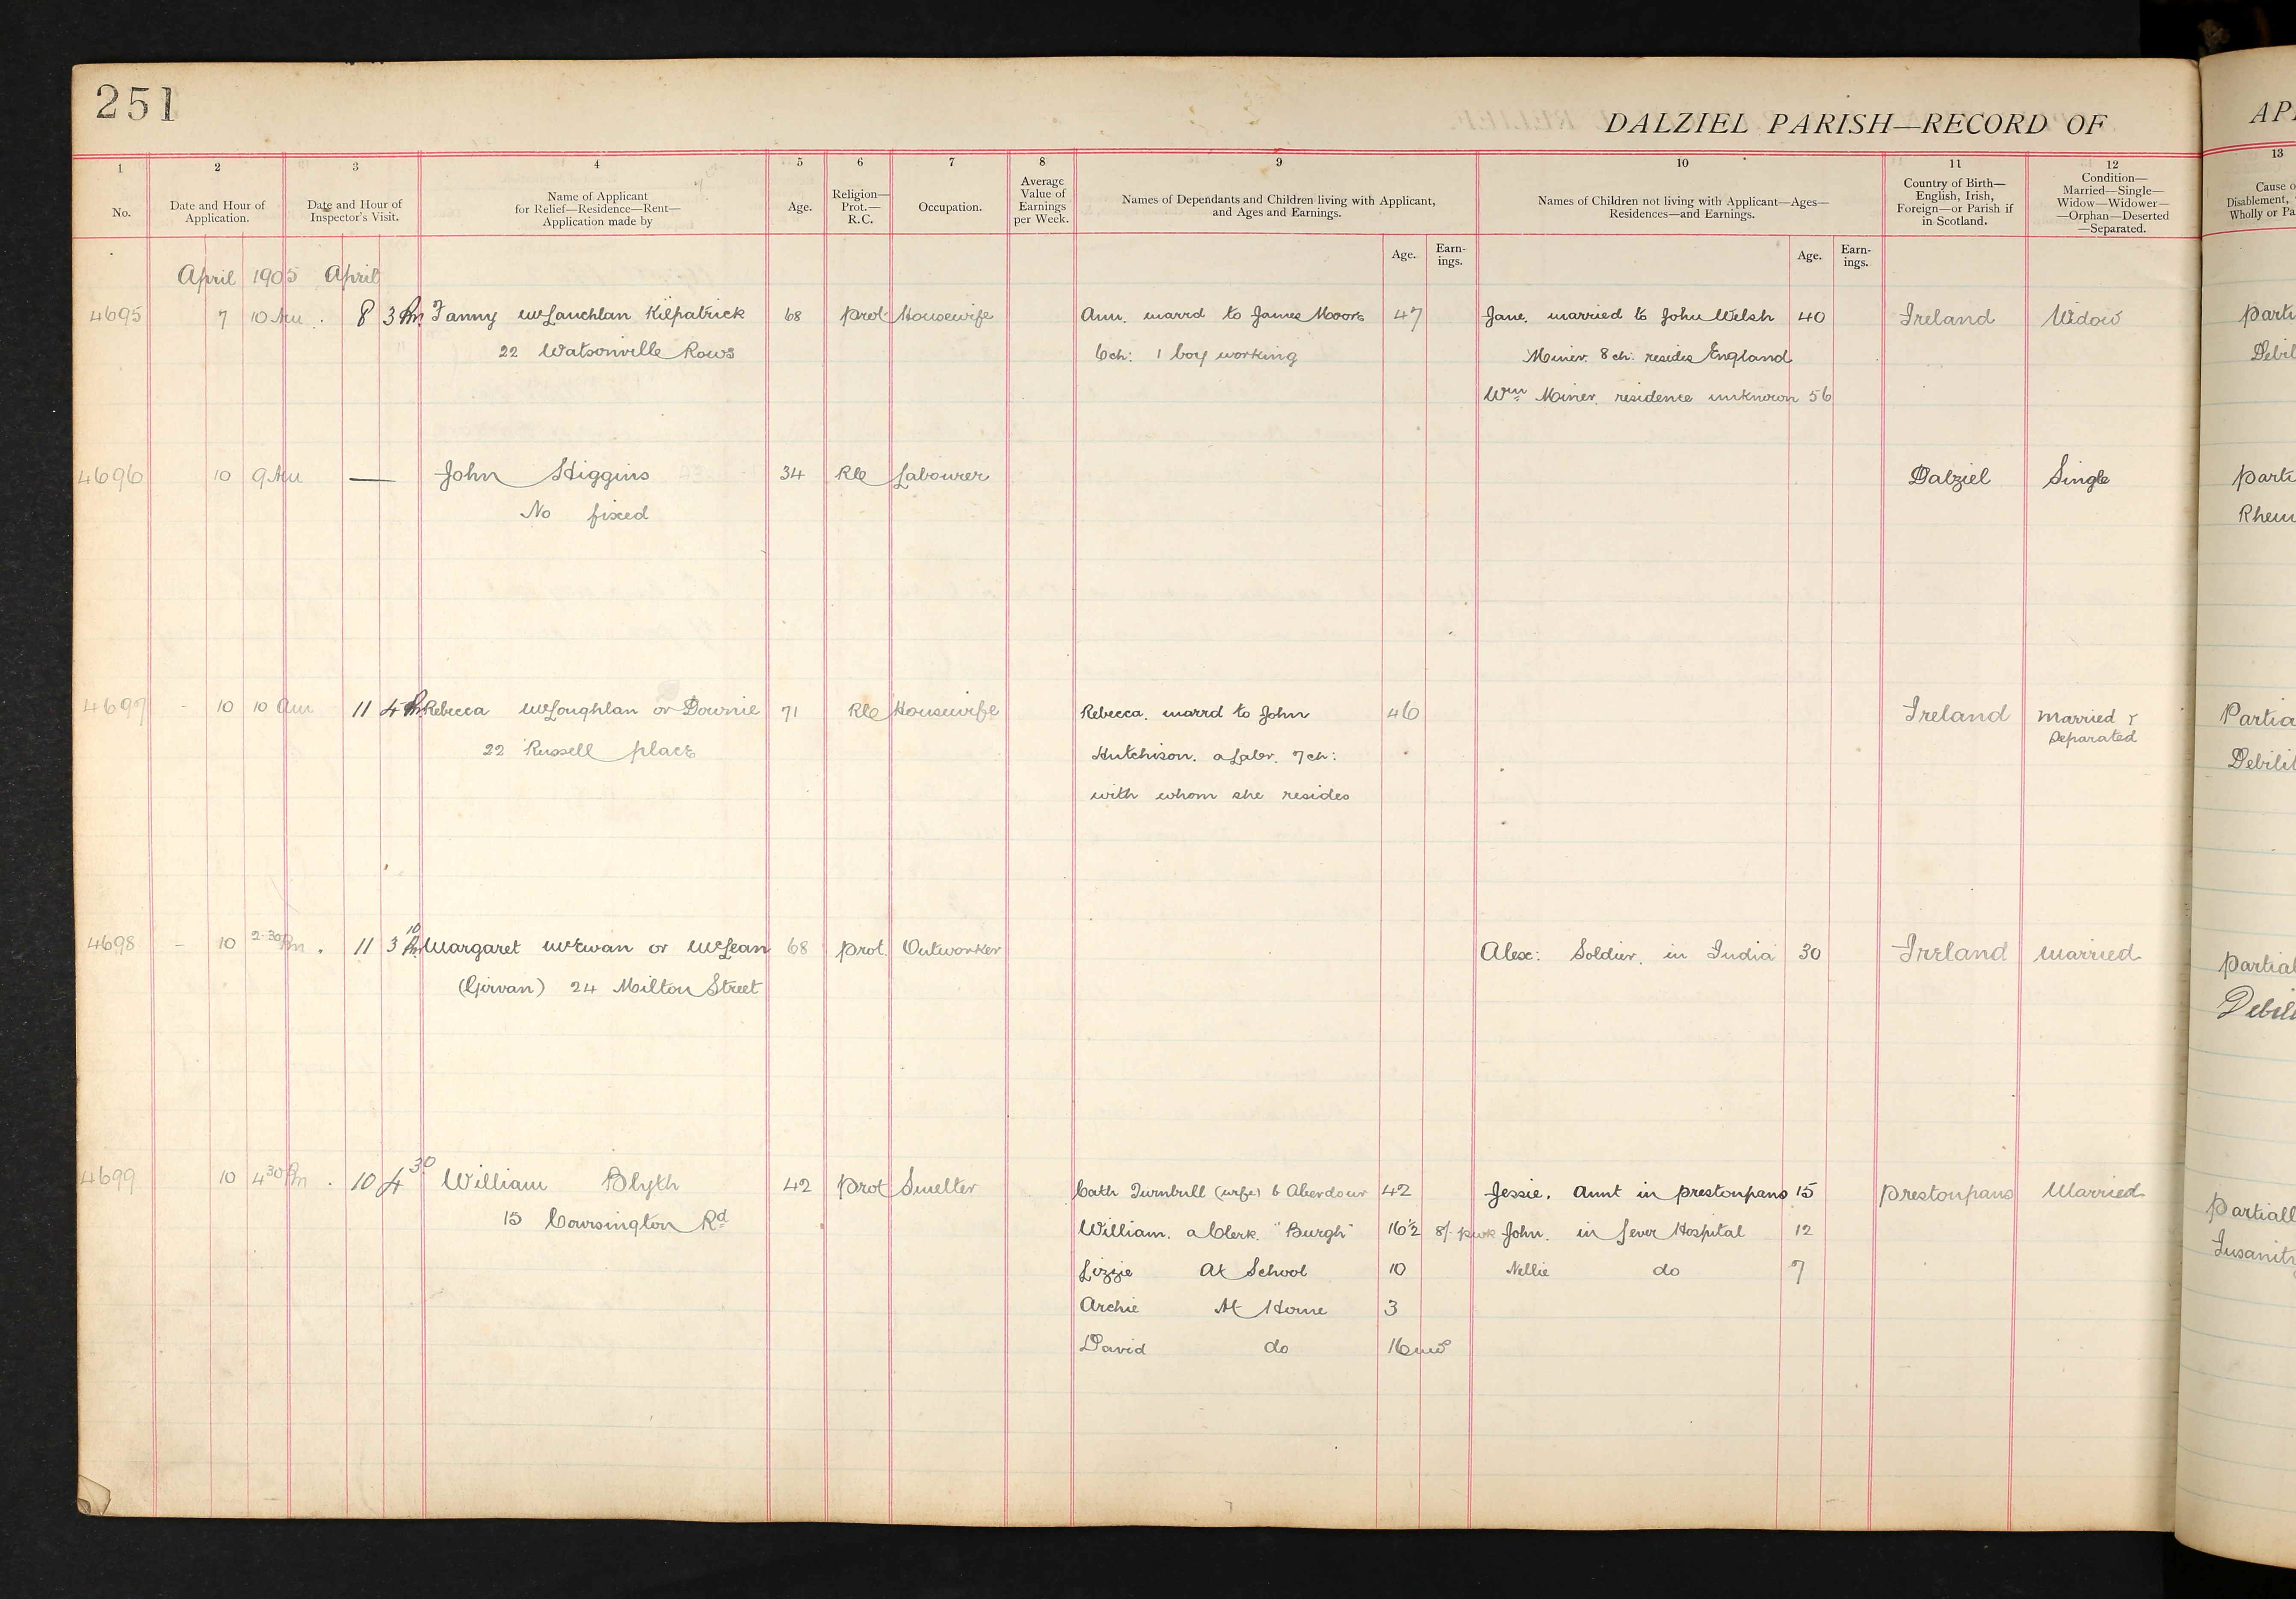 251
DALZIEL PARISH—RECORD OF
1 2 3 4 5 6 7 8 9 10 11 12 13
No. Date and Hour of Application. Date and Hour of Inspector's Visit. Name of Applicant for Relief—Residence—Rent—Application made by Age. Religion—Prot.—R.C. Occupation. Average Value of Earnings per Week. Names of Dependants and Children living with Applicant, and Ages and Earnings. Names of Children not living with Applicant—Ages—Residences—and Earnings. Country of Birth—English, Irish, Foreign—or Parish if in Scotland. Condition—Married—Single—Widow—Widower—Orphan—Deserted—Separated.
Age. Earnings. Age. Earnings.
April 1905 April
4695 7 10 Am 8 3 Pm Fanny McLauchlan Kilpatrick 68 Prot Housewife Ann. marrd to James Moore 47 Jane. married to John Welsh 40 Ireland Widow
22 Watsonville Rows 6 ch: 1 boy working Miner. 8 ch: resides England
Wm Miner. residence unknown 56
4696 10 9 Am — John Higgins 34 RC Labourer Dalziel Single
No fixed
4697 10 10 Am 11 4 Pm Rebecca McLoughlan or Downie 71 RC Housewife Rebecca. marrd to John 46 Ireland Married &
22 Russell place Hutchison. a Labr. 7 ch: Separated
with whom she resides
4698 - 10 2-30 Pm 11 3 10 Pm Margaret McEwan or McLean 68 Prot. Outworker Alex: Soldier. in India 30 Ireland Married
(Girvan) 24 Milton Street
4699 10 4 30 Pm 10 4 30 William Blyth 42 Prot Smelter Cath Turnbull (wife) b Aberdour 42 Jessie. Aunt in Prestonpans 15 Prestonpans Married
15 Coursington Rd William. a Clerk. "Burgh" 16½ 8/- pwk John. in fever Hospital 12
Lizzie At School 10 Nellie do 7
Archie At Home 3
David do 16 mos